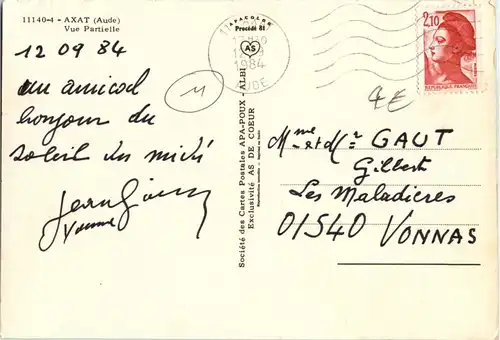 11140-4 - AXAT (Aude)
Vue Partielle
12 09 84
un amical
bonjour du
soleil du midi
Yvonne
11
APACOLOR
Procédé 81
AS
1984
AUDE
Société des Cartes Postales APA-POUX - ALBI
Exclusivité AS DE COEUR
2,10
REPUBLIQUE FRANÇAISE
4€
Mme et Mr GAUT
Gilbert
Les Maladieres
01540 VONNAS